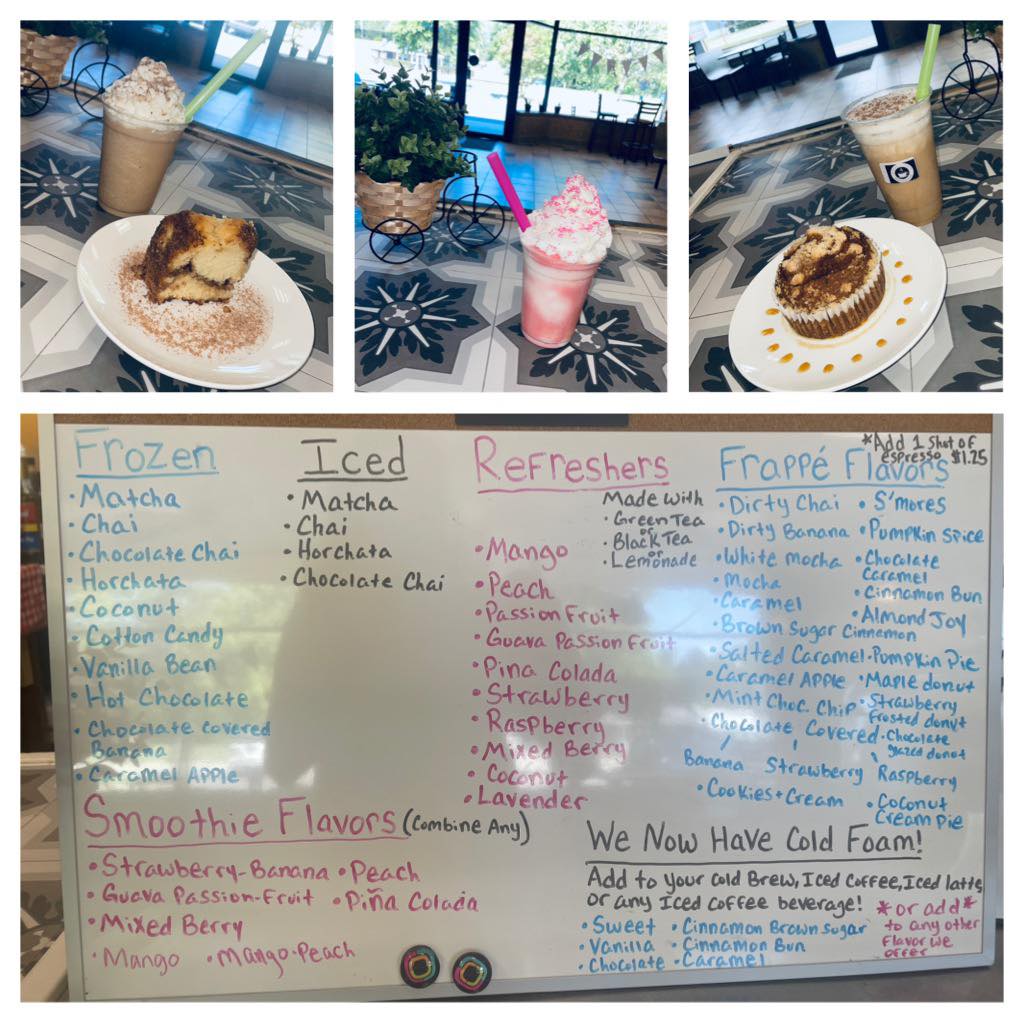 Frozen
• Matcha
• Chai
• Chocolate Chai
• Horchata
• Coconut
• Cotton Candy
• Vanilla Bean
• Hot Chocolate
• Chocolate covered
Banana
• Caramel Apple
Iced
• Matcha
• Chai
• Horchata
• Chocolate Chai
Refreshers
Made with
• Green Tea
or
• Black Tea
or
• Lemonade
• Mango
• Peach
• Passion Fruit
• Guava Passion Fruit
• Pina Colada
• Strawberry
• Raspberry
• Mixed Berry
• Coconut
• Lavender
*Add 1 Shot of
espresso $1.25
Frappé Flavors
• Dirty Chai
• Dirty Banana
• White mocha
• Mocha
• Caramel
• Brown Sugar Cinnamon
• Salted Caramel
• Caramel Apple
• Mint Choc. Chip
• Chocolate Covered
Banana Strawberry Raspberry
• Cookies + Cream
• S'mores
• Pumpkin Spice
• Chocolate
Caramel
• Cinnamon Bun
• Almond Joy
• Pumpkin Pie
• Maple donut
• Strawberry
frosted donut
• Chocolate
glazed donut
• Coconut
Cream Pie
Smoothie Flavors (Combine Any)
• Strawberry-Banana • Peach
• Guava Passion-Fruit • Piña Colada
• Mixed Berry
• Mango • Mango-Peach
We Now Have Cold Foam!
Add to your Cold Brew, Iced Coffee, Iced latts
or any Iced Coffee beverage!
• Sweet • Cinnamon Brown Sugar
• Vanilla • Cinnamon Bun
• Chocolate • Caramel
*or add*
to any other
Flavor we
offer